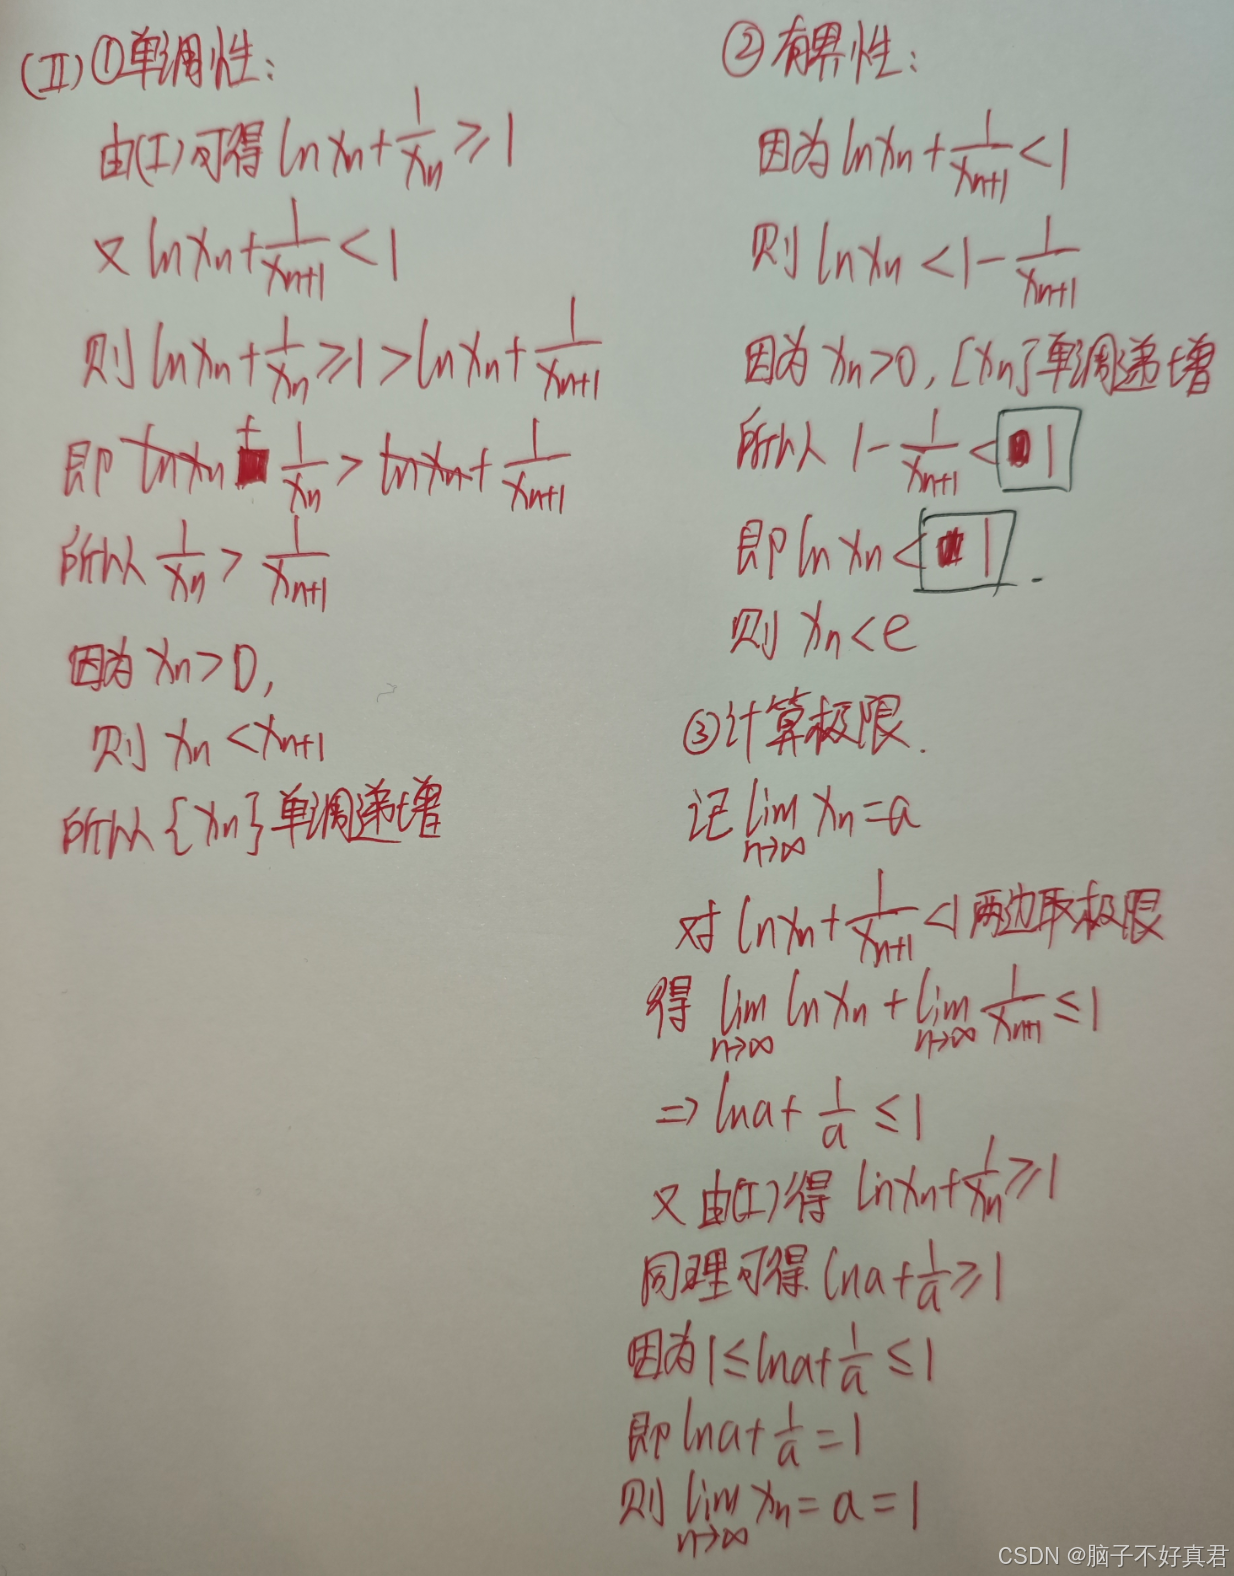 (II) ①单调性:
由(I)可得 ln xn + 1/xn ≥ 1
又 ln xn + 1/xn+1 < 1
则 ln xn + 1/xn ≥ 1 > ln xn + 1/xn+1
即 ln xn + 1/xn > ln xn + 1/xn+1
所以 1/xn > 1/xn+1
因为 xn > 0,
则 xn < xn+1
所以 {xn} 单调递增
②有界性:
因为 ln xn + 1/xn+1 < 1
则 ln xn < 1 - 1/xn+1
因为 xn > 0, [xn] 单调递增
所以 1 - 1/xn+1 < 1
即 ln xn < 1.
则 xn < e
③计算极限.
记 lim n→∞ xn = a
对 ln xn + 1/xn+1 < 1 两边取极限
得 lim n→∞ ln xn + lim n→∞ 1/xn+1 ≤ 1
⇒ ln a + 1/a ≤ 1
又由(I)得 ln xn + 1/xn ≥ 1
同理可得 ln a + 1/a ≥ 1
因为 1 ≤ ln a + 1/a ≤ 1
即 ln a + 1/a = 1
则 lim n→∞ xn = a = 1
CSDN @脑子不好真君